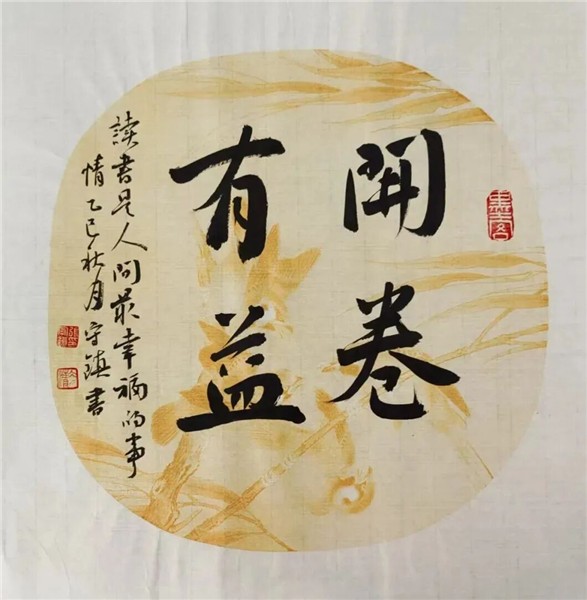 開卷
有益
讀書是人間最幸福的事
情乙巳秋月守鎮書